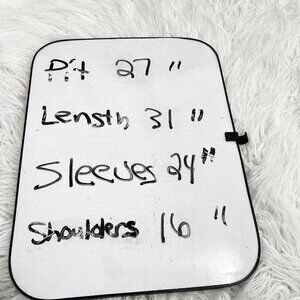 Pit 27 "
Length 31 "
Sleeves 24"
Shoulders 16 "